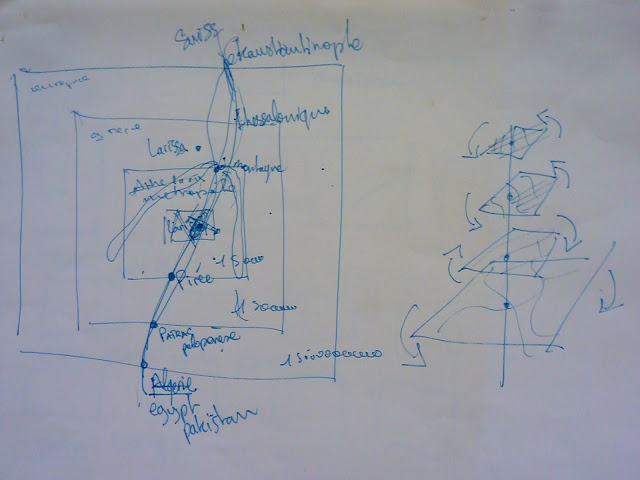 Suiss
Konstantinople
europe
thessalonique
grece
Larissa
montagne
metropole
1 5000
Pirée
1 50000
PATRAS
peloponese
Algerie
egypt
pakistan